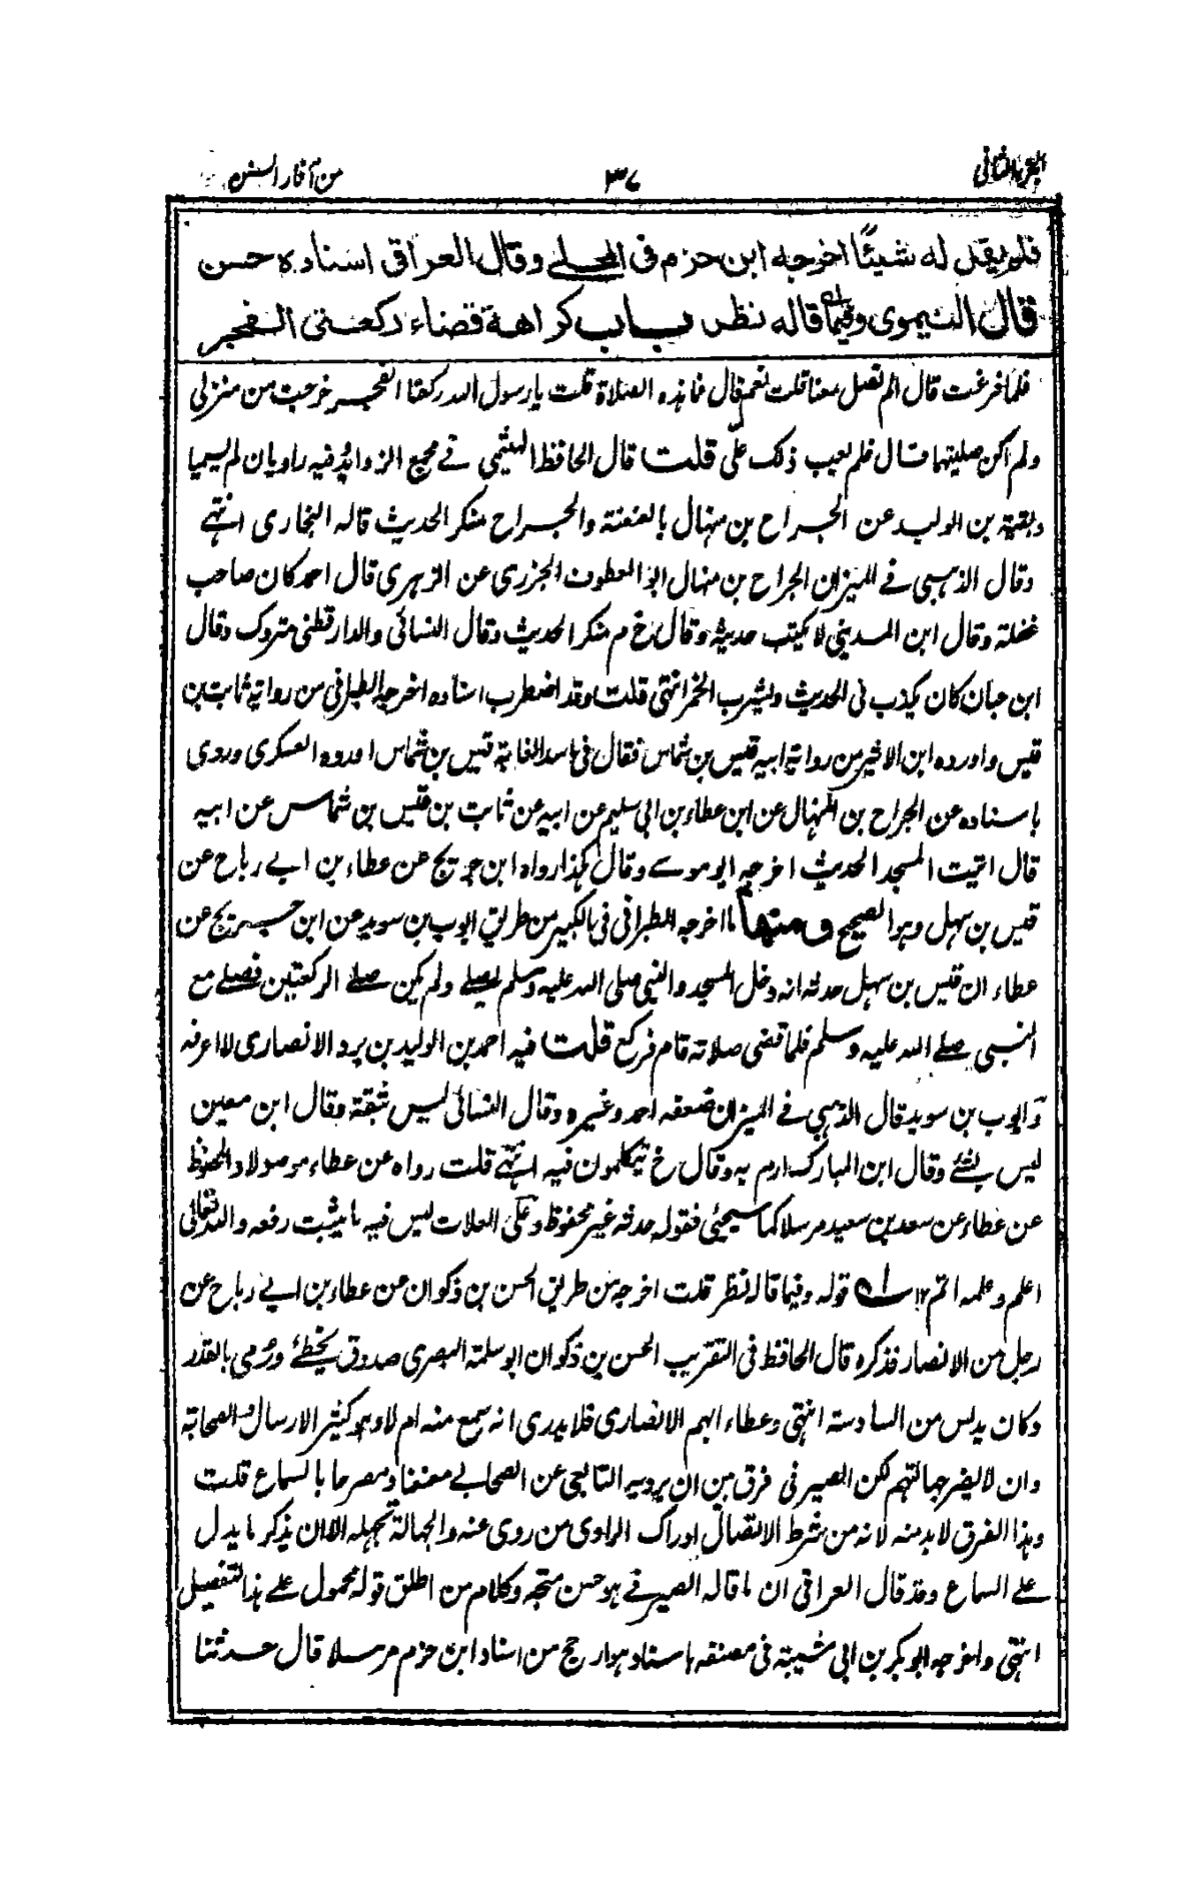 الجزء الثاني
٣٧
من آثار السنن
فلم يقل له شيئًا اخرجه ابن حزم فى المحلى وقال العراقى اسناده حسن
قال النيموى وفيما قاله نظر باب كراهة قضاء ركعتى الفجر
فلما فرغت قال الم تصل معنا قلت نعم قال فما هذه الصلاة قلت يا رسول الله ركعتا الفجر خرجت من منزلى
ولم اكن صليتهما قال فلم يعب ذلك علىّ قلت قال الحافظ الهيثمى فى مجمع الزوائد فيه راويان لم يسميا
وبقية بن الوليد عن الجراح بن منهال بالعنعنة والجراح منكر الحديث قاله البخارى انتهى
وقال الذهبى فى الميزان الجراح بن منهال ابو العطوف الجزرى عن الزهرى قال احمد كان صاحب
غفلة وقال ابن المدينى لا يكتب حديثه وقال خ م منكر الحديث وقال النسائى والدارقطنى متروك وقال
ابن حبان كان يكذب فى الحديث ويشرب الخمر انتهى قلت وقد اضطرب اسناده اخرجه الطبرانى من رواية ثابت بن
قيس واورده ابن الاثير من رواية ابيه قيس بن شماس فقال فى اسد الغابة قيس بن شماس اورده العسكرى وروى
باسناده عن الجراح بن المنهال عن ابن عطاء بن ابى سليم عن ابيه عن ثابت بن قيس بن شماس عن ابيه
قال اتيت المسجد الحديث اخرجه ابو موسى وقال كهذا رواه ابن جريج عن عطاء بن ابى رباح عن
قيس بن سهل وهو الصحيح ومنها ما اخرجه الطبرانى فى الكبير من طريق ايوب بن سويد عن ابن جريج عن
عطاء ان قيس بن سهل حدثه انه دخل المسجد والنبى صلى الله عليه وسلم يصلى ولم يكن صلى الركعتين فصلى مع
النبى صلى الله عليه وسلم فلما قضى صلاته قام فركع قلت فيه احمد بن الوليد بن برد الانصارى لا اعرفه
وايوب بن سويد قال الذهبى فى الميزان ضعفه احمد وغيره وقال النسائى ليس بثقة وقال ابن معين
ليس بشئ وقال ابن المبارك ارم به وقال خ يتكلمون فيه انتهى قلت رواه عن عطاء موصولا والمحفوظ
عن عطاء عن سعد بن سعيد مرسلا كما سيجئ فقوله حدثه غير محفوظ وعلى العلات ليس فيه ما يثبت رفعه والله تعالى
اعلم وعلمه اتم ١٢ سه قوله وفيما قاله نظر قلت اخرجه من طريق الحسن بن ذكوان عن عطاء بن ابى رباح عن
رجل من الانصار فذكره قال الحافظ فى التقريب الحسن بن ذكوان ابو سلمة البصرى صدوق يخطئ ورمى بالقدر
وكان يدلس من السادسة انتهى وعطاء ابهم الانصارى فلا يدرى انه سمع منه ام لا وهو كثير الارسال والصحابة
وان لا يضر جهالتهم لكن الصيرفى فرق بين ان يرويه التابعى عن الصحابى معنعنا ومصرحا بالسماع قلت
وهذا الفرق لا بد منه لانه من شرط الاتصال ادراك الراوى من روى عنه والجهالة تجهله الا ان يذكر ما يدل
على السماع وقد قال العراقى ان ما قاله الصيرفى هو حسن متجه وكلام من اطلق قوله محمول على هذا التفصيل
انتهى واخرجه ابو بكر بن ابى شيبة فى مصنفه باسناد هو ارجح من اسناد ابن حزم مرسلا قال حدثنا